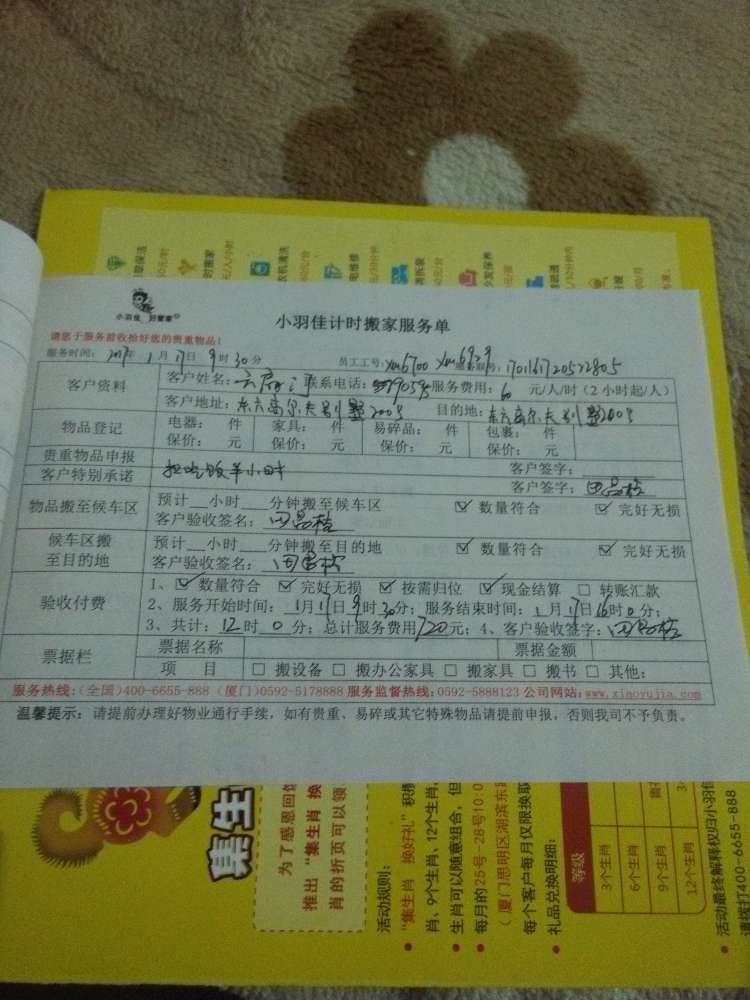 小羽佳 好管家
小羽佳计时搬家服务单
请您于服务前收拾好您的贵重物品!
服务时间: 2017年 1月17日9时30分 员工工号: xm6700 xm6929 服务联号: 1701161720522805
客户资料 客户姓名: 联系电话: 服务费用: 60 元/人/时(2小时起/人)
客户地址: 东方高尔夫别墅2005 目的地: 东方高尔夫别墅2005
物品登记 电器: 件 家具: 件 易碎品: 件 包裹: 件
保价: 元 保价: 元 保价: 元 保价: 元
贵重物品申报 客户签字:
客户特别承诺 扣吃饭半小时 客户签字:
物品搬至候车区 预计__小时__分钟搬至候车区 ☑ 数量符合 ☑ 完好无损
客户验收签名:
候车区搬至目的地 预计__小时__分钟搬至目的地 ☑ 数量符合 ☑ 完好无损
客户验收签名:
验收付费 1、☑ 数量符合 ☑ 完好无损 ☑ 按需归位 ☑ 现金结算 □ 转账汇款
2、服务开始时间: 1月17日9时30分; 服务结束时间: 1月17日16时0分;
3、共计: 12时0分; 总计服务费用720元; 4、客户验收签字:
票据栏 票据名称 票据金额
项 目 □ 搬设备 □ 搬办公家具 □ 搬家具 □ 搬书 □ 其他:
服务热线:(全国)400-6655-888 (厦门)0592-5178888 服务监督热线:0592-5888123 公司网站:www.xiaoyujia.com
温馨提示: 请提前办理好物业通行手续, 如有贵重、易碎或其它特殊物品请提前申报, 否则我司不予负责。
集生
为了感恩回
推出“集生肖 换
肖的折页可以领
活动规则:
“集生肖 换好礼”积
肖、9个生肖、12个生肖,
生肖可以随意组合, 但
每月的25号-28号10:0
(厦门思明区湖滨东
每个客户每月仅限换取
礼品兑换明细:
等级
3个生肖
6个生肖
9个生肖
12个生肖
活动最终解释权归小羽佳
请拨打400-6655-888